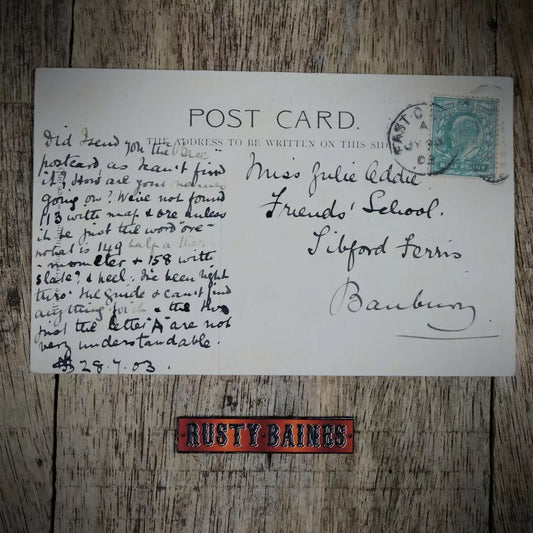 POST CARD.
THE ADDRESS TO BE WRITTEN ON THIS SIDE
Did I send you the
postcard as I can't find
it? How are your names
going on? We've not found
113 with map & ore unless
it be just the word "ore"
what is 149 half a ther-
-mometer & 158 with
slate? & heel. I've been right
thro' the guide & can't find
anything for it & the two
just the letter "A" are not
very understandable.
28.7.03.
Miss Julie Addie.
Friends' School.
Sibford Ferris
Banbury
EAST
A
JY
03
RUSTY BAINES